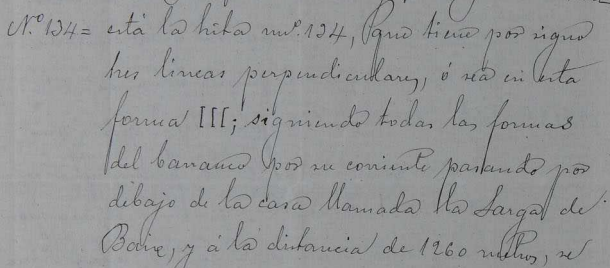 N.º 134= está la hita nuº. 134, que tiene por signo
tres lineas perpendiculares, ó sea en esta
forma III; siguiendo todas las formas
del barranco por su corriente pasando por
debajo de la casa llamada la Sarga de
y á la distancia de 1260 metros, se